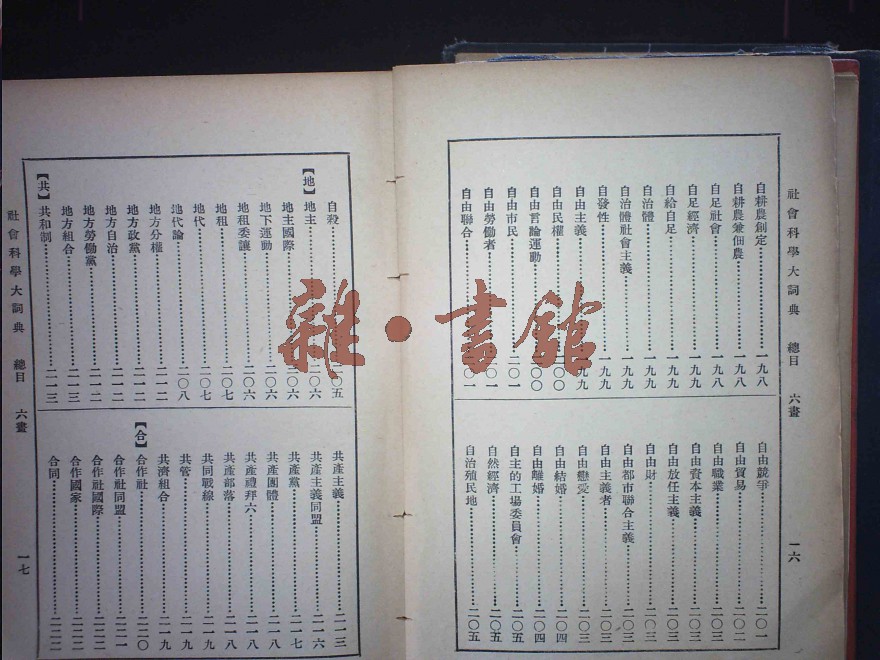 社會科學大詞典 總目 六畫 一六
自耕農創定 一九八
自耕農兼佃農 一九八
自足社會 一九八
自足經濟 一九九
自給自足 一九九
自治體 一九九
自治體社會主義 一九九
自發性 一九九
自由主義 一九九
自由民權
自由言論運動
自由市民
自由勞働者
自由聯合
自由競爭 二〇一
自由貿易 二〇二
自由職業 二〇三
自由資本主義 二〇三
自由放任主義 二〇三
自由財 二〇三
自由都市聯合主義 二〇三
自由主義者 二〇三
自由戀愛 二〇三
自由結婚 二〇四
自由離婚 二〇四
自主的工場委員會 二〇五
自然經濟 二〇五
自治殖民地 二〇五
自殺 二〇五
【地】
地主 二〇六
地主國際 二〇六
地下運動 二〇六
地租委讓 二〇六
地租 二〇七
地代 二〇七
地代論 二〇八
地方分權 二一二
地方政黨 二一二
地方自治 二一二
地方勞働黨 二一二
地方組合 二一三
【共】
共和制 二一三
共產主義 二一三
共產主義同盟 二一六
共產黨 二一七
共產團體 二一八
共產禮拜六 二一八
共產部落 二一八
共同戰線 二一九
共管 二一九
共濟組合 二一九
【合】
合作社 二二〇
合作社同盟 二二一
合作社國際 二二二
合作國家 二二二
合同 二二二
社會科學大詞典 總目 六畫 一七
雜·書館